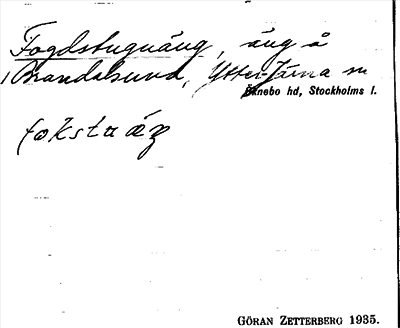 Fogdstugnäng, äng å
Brandalsund, Ytter-Järna sn
Öknebo hd, Stockholms l.
fokstuäŋ
GÖRAN ZETTERBERG 1935.